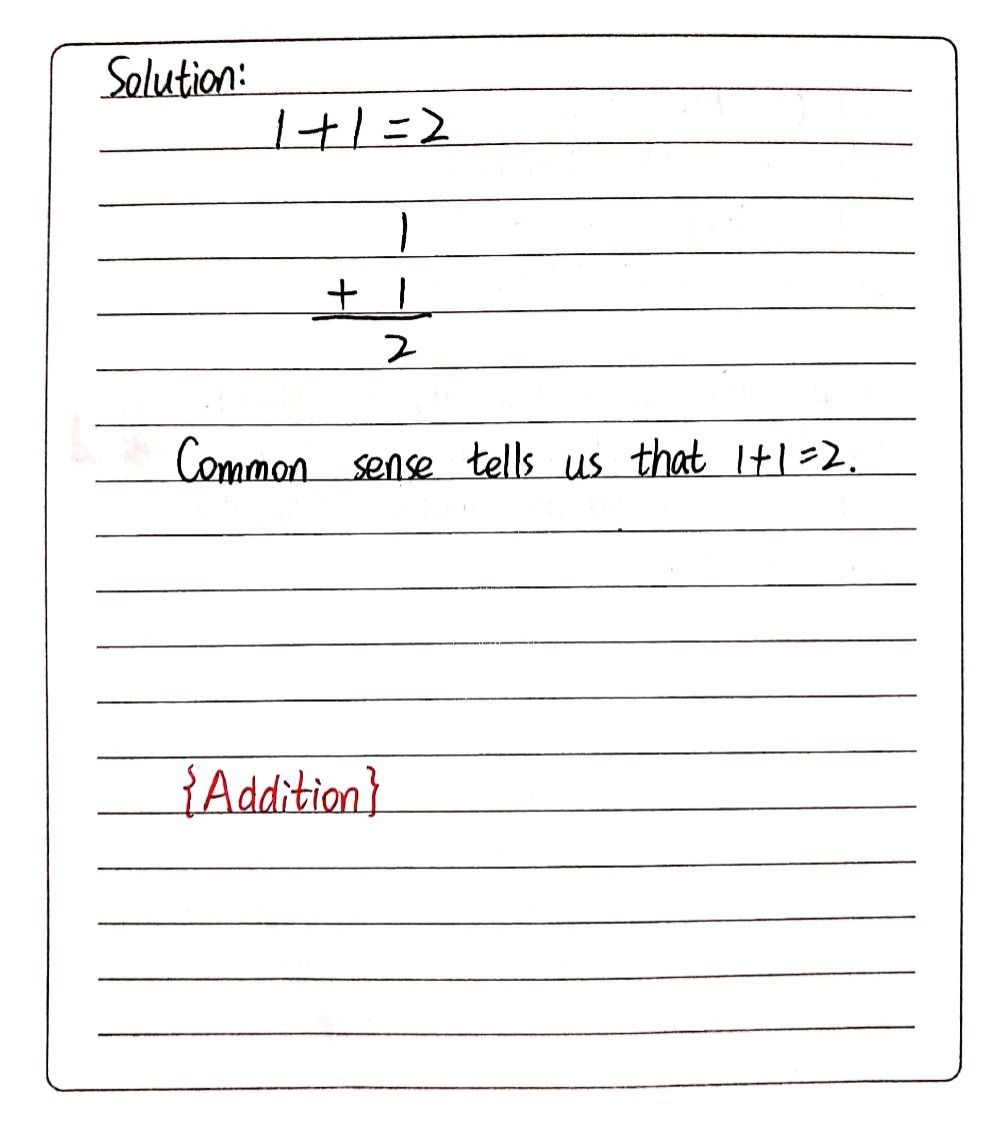 Solution:
1+1=2
1
+ 1
2
Common sense tells us that 1+1=2.
{Addition}